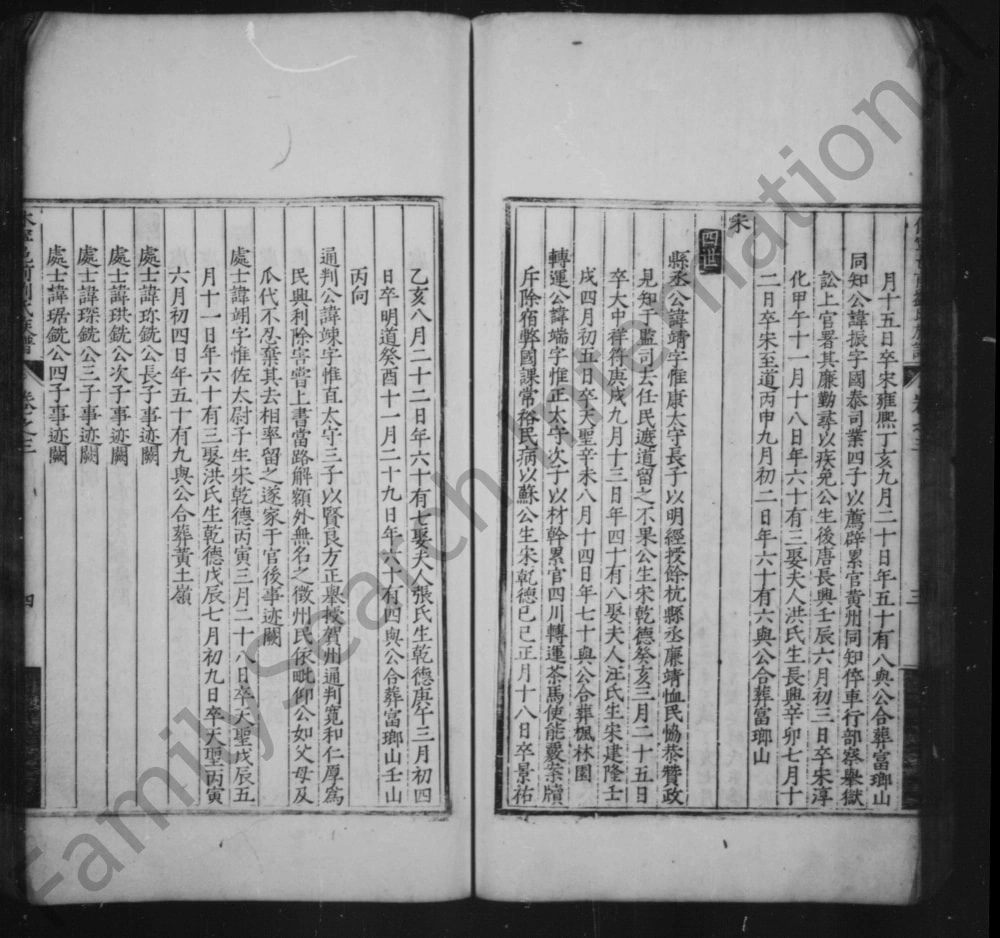 月十五日卒宋雍熙丁亥九月二十日年五十有八與公合葬富瑯山
同知公諱振字國泰司業四子以薦辟累官黄州同知倅車行部察舉獄
訟上官署其廉勤尋以疾免公生後唐長興壬辰六月初三日卒宋淳
化甲午十一月十八日年六十有三娶夫人洪氏生長興辛卯七月十
二日卒宋至道丙申九月初二日年六十有六與公合葬富瑯山
宋
四世
縣丞公諱靖字惟康太守長子以明經授餘杭縣丞廉靖恤民恊恭贊政
見知于監司去任民遮道留之不果公生宋乾德癸亥三月二十五日
卒大中祥符庚戌九月十三日年四十有八娶夫人汪氏生宋建隆壬
戌四月初五日卒天聖辛未八月十四日年七十與公合葬楓林園
轉運公諱端字惟正太守次子以材幹累官四川轉運茶馬使能覈案牘
斥除宿弊國課常裕民病以蘇公生宋乾德己巳正月十八日卒景祐
乙亥八月二十二日年六十有七娶夫人張氏生乾德庚午三月初四
日卒明道癸酉十一月二十九日年六十有四與公合葬富瑯山壬山
丙向
通判公諱竦字惟直太守三子以賢良方正舉授賀州通判寬和仁厚爲
民興利除害嘗上書當路解額外無名之徵州民依毗仰公如父母及
瓜代不忍棄其去相率留之遂家于官後事迹闕
處士諱翊字惟佐太尉子生宋乾德丙寅三月二十八日卒天聖戊辰五
月十一日年六十有三娶洪氏生乾德戊辰七月初九日卒天聖丙寅
六月初四日年五十有九與公合葬黄土嶺
處士諱珎銑公長子事迹闕
處士諱珙銑公次子事迹闕
處士諱琛銑公三子事迹闕
處士諱琚銑公四子事迹闕
卷之三
四
FamilySearch International